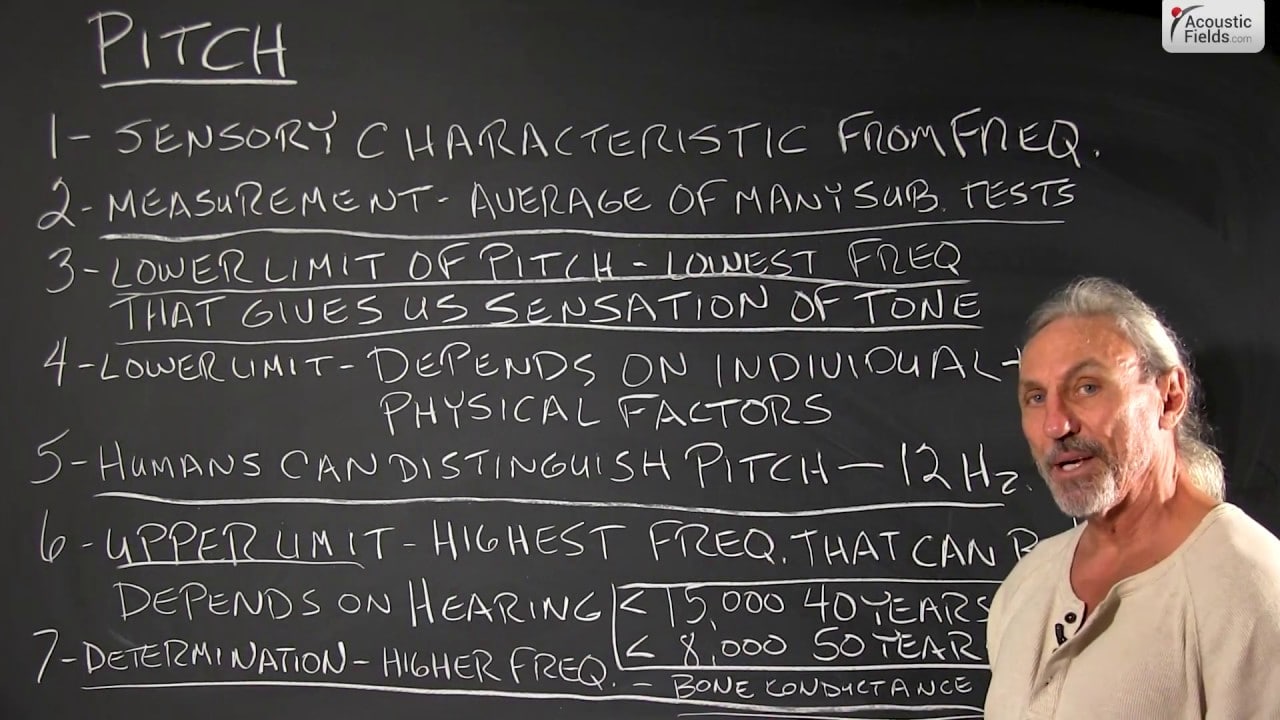 PITCH
1- SENSORY CHARACTERISTIC FROM FREQ.
2- MEASUREMENT - AVERAGE OF MANY SUB. TESTS
3- LOWER LIMIT OF PITCH - LOWEST FREQ
THAT GIVES US SENSATION OF TONE
4- LOWER LIMIT - DEPENDS ON INDIVIDUAL +
PHYSICAL FACTORS
5- HUMANS CAN DISTINGUISH PITCH - 12 Hz.
6- UPPER LIMIT - HIGHEST FREQ. THAT CAN
DEPENDS ON HEARING < 15,000 40 YEARS
< 8,000 50 YEAR
7- DETERMINATION - HIGHER FREQ. - BONE CONDUCTANCE
Acoustic
Fields.com